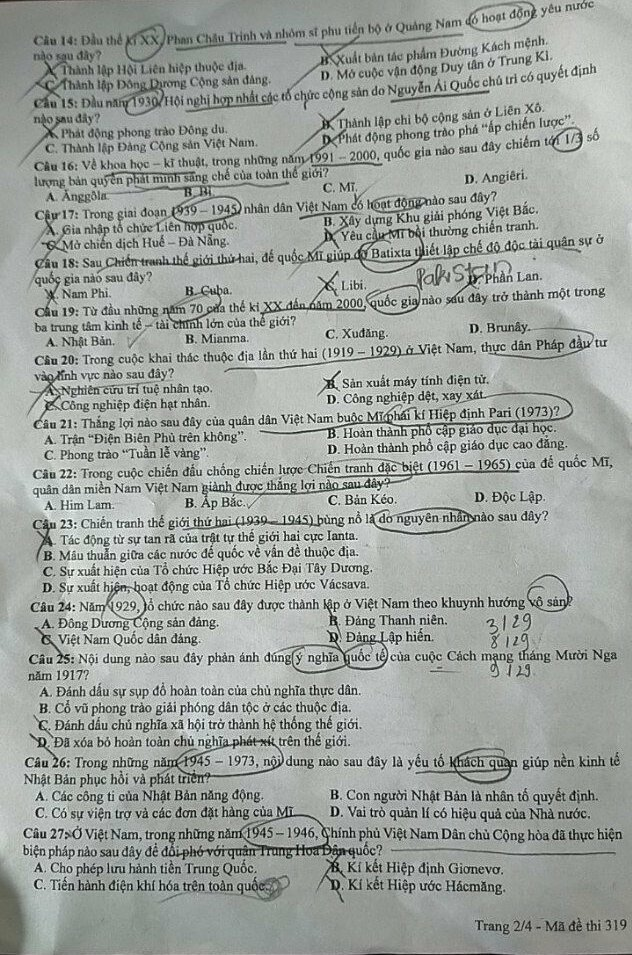 Câu 14: Đầu thế kỉ XX, Phan Châu Trinh và nhóm sĩ phu tiến bộ ở Quảng Nam có hoạt động yêu nước
nào sau đây?
A. Thành lập Hội Liên hiệp thuộc địa. B. Xuất bản tác phẩm Đường Kách mệnh.
C. Thành lập Đông Dương Cộng sản đảng. D. Mở cuộc vận động Duy tân ở Trung Kì.
Câu 15: Đầu năm 1930, Hội nghị hợp nhất các tổ chức cộng sản do Nguyễn Ái Quốc chủ trì có quyết định
nào sau đây?
A. Phát động phong trào Đông du. B. Thành lập chi bộ cộng sản ở Liên Xô.
C. Thành lập Đảng Cộng sản Việt Nam. D. Phát động phong trào phá “ấp chiến lược”.
Câu 16: Về khoa học – kĩ thuật, trong những năm 1991 – 2000, quốc gia nào sau đây chiếm tới 1/3 số
lượng bản quyền phát minh sáng chế của toàn thế giới?
A. Ănggôla. B. Bỉ. C. Mĩ. D. Angiêri.
Câu 17: Trong giai đoạn 1939 – 1945, nhân dân Việt Nam có hoạt động nào sau đây?
A. Gia nhập tổ chức Liên hợp quốc. B. Xây dựng Khu giải phóng Việt Bắc.
C. Mở chiến dịch Huế – Đà Nẵng. D. Yêu cầu Mĩ bồi thường chiến tranh.
Câu 18: Sau Chiến tranh thế giới thứ hai, đế quốc Mĩ giúp đỡ Batixta thiết lập chế độ độc tài quân sự ở
quốc gia nào sau đây?
A. Nam Phi. B. Cuba. C. Libi. D. Phần Lan.
Câu 19: Từ đầu những năm 70 của thế kỉ XX đến năm 2000, quốc gia nào sau đây trở thành một trong
ba trung tâm kinh tế – tài chính lớn của thế giới?
A. Nhật Bản. B. Mianma. C. Xuđăng. D. Brunây.
Câu 20: Trong cuộc khai thác thuộc địa lần thứ hai (1919 – 1929) ở Việt Nam, thực dân Pháp đầu tư
vào lĩnh vực nào sau đây?
A. Nghiên cứu trí tuệ nhân tạo. B. Sản xuất máy tính điện tử.
C. Công nghiệp điện hạt nhân. D. Công nghiệp dệt, xay xát.
Câu 21: Thắng lợi nào sau đây của quân dân Việt Nam buộc Mĩ phải kí Hiệp định Pari (1973)?
A. Trận “Điện Biên Phủ trên không”. B. Hoàn thành phổ cập giáo dục đại học.
C. Phong trào “Tuần lễ vàng”. D. Hoàn thành phổ cập giáo dục cao đẳng.
Câu 22: Trong cuộc chiến đấu chống chiến lược Chiến tranh đặc biệt (1961 – 1965) của đế quốc Mĩ,
quân dân miền Nam Việt Nam giành được thắng lợi nào sau đây?
A. Him Lam. B. Ấp Bắc. C. Bản Kéo. D. Độc Lập.
Câu 23: Chiến tranh thế giới thứ hai (1939 – 1945) bùng nổ là do nguyên nhân nào sau đây?
A. Tác động từ sự tan rã của trật tự thế giới hai cực Ianta.
B. Mâu thuẫn giữa các nước đế quốc về vấn đề thuộc địa.
C. Sự xuất hiện của Tổ chức Hiệp ước Bắc Đại Tây Dương.
D. Sự xuất hiện, hoạt động của Tổ chức Hiệp ước Vácsava.
Câu 24: Năm 1929, tổ chức nào sau đây được thành lập ở Việt Nam theo khuynh hướng vô sản?
A. Đông Dương Cộng sản đảng. B. Đảng Thanh niên. 3129
C. Việt Nam Quốc dân đảng. D. Đảng Lập hiến. 8129
Câu 25: Nội dung nào sau đây phản ánh đúng ý nghĩa quốc tế của cuộc Cách mạng tháng Mười Nga
năm 1917? 9129
A. Đánh dấu sự sụp đổ hoàn toàn của chủ nghĩa thực dân.
B. Cổ vũ phong trào giải phóng dân tộc ở các thuộc địa.
C. Đánh dấu chủ nghĩa xã hội trở thành hệ thống thế giới.
D. Đã xóa bỏ hoàn toàn chủ nghĩa phát xít trên thế giới.
Câu 26: Trong những năm 1945 - 1973, nội dung nào sau đây là yếu tố khách quan giúp nền kinh tế
Nhật Bản phục hồi và phát triển?
A. Các công ti của Nhật Bản năng động. B. Con người Nhật Bản là nhân tố quyết định.
C. Có sự viện trợ và các đơn đặt hàng của Mĩ. D. Vai trò quản lí có hiệu quả của Nhà nước.
Câu 27: Ở Việt Nam, trong những năm 1945 – 1946, Chính phủ Việt Nam Dân chủ Cộng hòa đã thực hiện
biện pháp nào sau đây để đối phó với quân Trung Hoa Dân quốc?
A. Cho phép lưu hành tiền Trung Quốc. B. Kí kết Hiệp định Giơnevơ.
C. Tiến hành điện khí hóa trên toàn quốc. D. Kí kết Hiệp ước Hácmăng.
Trang 2/4 - Mã đề thi 319